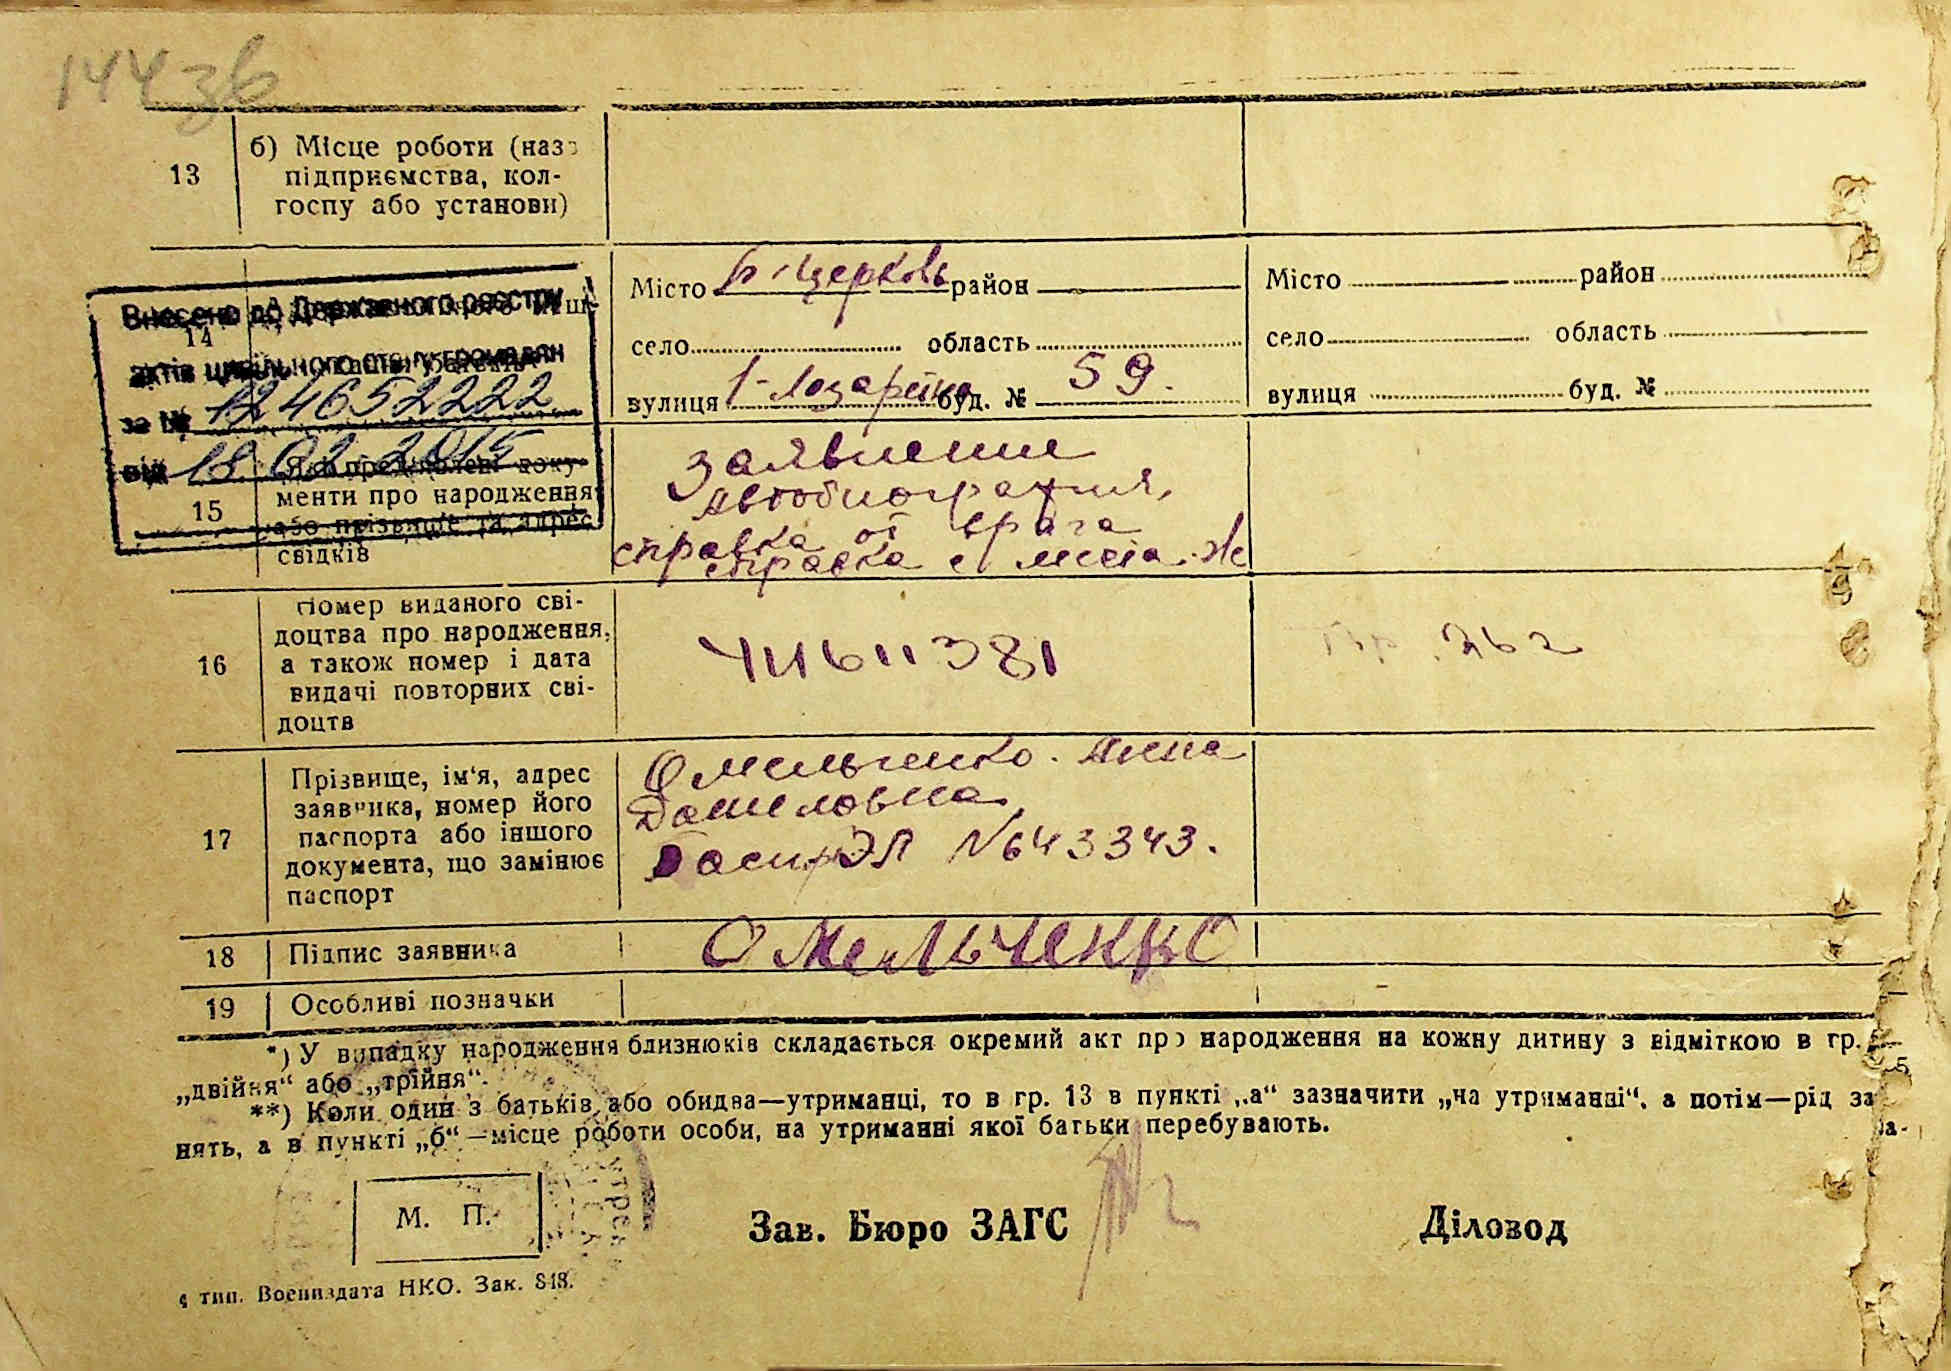 144 зв
13
б) Місце роботи (назв
підприємства, кол-
госпу або установи)
Внесено до Державного реєстру
14
актів цивільного стану громадян
за № 124652222
від 18.02.2015
Місто Б-Церковь район
село область
вулиця буд. № 59.
Місто район
село область
вулиця буд. №
15
Які пред'явлені доку-
менти про народження
або прізвище та адрес
свідків
заявление
автобиография,
справка от врача
справка с места ж
16
Номер виданого сві-
доцтва про народження,
а також номер і дата
видачі повторних сві-
доцтв
611381
17
Прізвище, ім'я, адрес
заявника, номер його
паспорта або іншого
документа, що замінює
паспорт
Омельченко. Анна
Даниловна,
№ 643343.
18 Підпис заявника
Омельченко
19 Особливі позначки
*) У випадку народження близнюків складається окремий акт про народження на кожну дитину з відміткою в гр. 5
„двійня“ або „трійня“.
**) Коли один з батьків або обидва—утриманці, то в гр. 13 в пункті „а“ зазначити „на утриманні“, а потім—рід за
нять, а в пункті „б“—місце роботи особи, на утриманні якої батьки перебувають.
М. П.
Зав. Бюро ЗАГС
Діловод
тип. Воениздата НКО. Зак. 848.